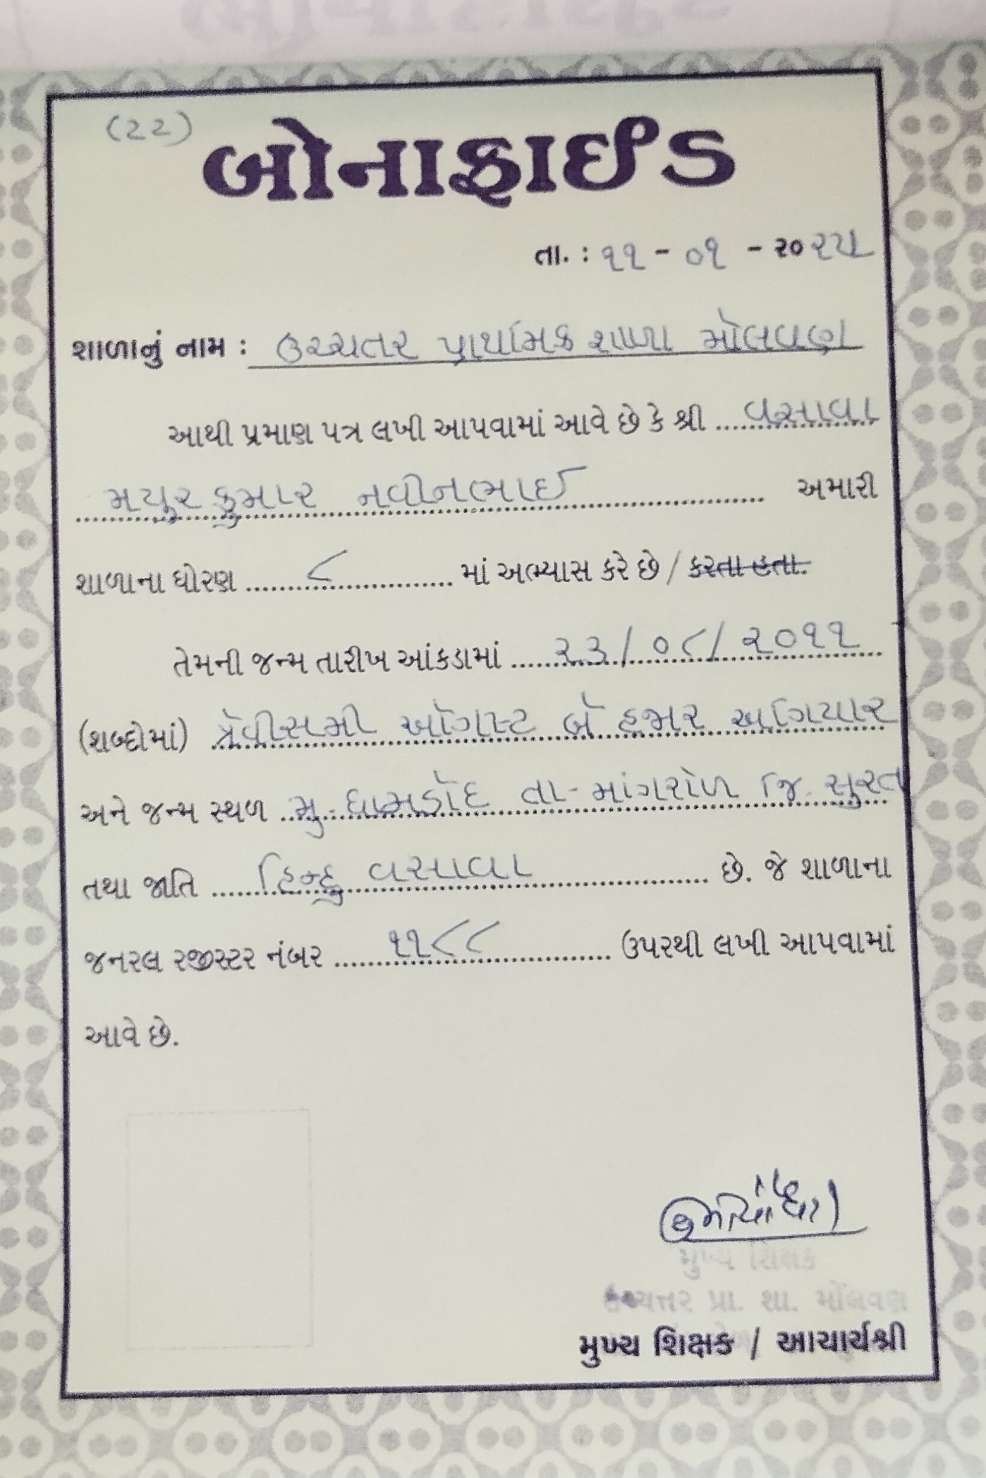 (22)
બોનાફાઈડ
તા. : ૧૧ - ૦૧ - ૨૦૨૫
શાળાનું નામ : ઉચ્ચતર પ્રાથમિક શાળા મોલવણ
આથી પ્રમાણ પત્ર લખી આપવામાં આવે છે કે શ્રી વસાવા
મયુરકુમાર નવીનભાઈ અમારી
શાળાના ધોરણ ૮ માં અભ્યાસ કરે છે / કરતા હતા.
તેમની જન્મ તારીખ આંકડામાં ૨૩/૦૮/૨૦૧૧
(શબ્દોમાં) ત્રેવીસમી ઓગષ્ટ બે હજાર અગિયાર
અને જન્મ સ્થળ મુ. ધામડોદ તા- માંગરોળ જિ. સુરત
તથા જાતિ હિન્દુ વસાવા છે. જે શાળાના
જનરલ રજીસ્ટર નંબર ૧૧૮૮ ઉપરથી લખી આપવામાં
આવે છે.
મુખ્ય શિક્ષક
ઉચ્ચત્તર પ્રા. શા. મોલવણ
મુખ્ય શિક્ષક / આચાર્યશ્રી